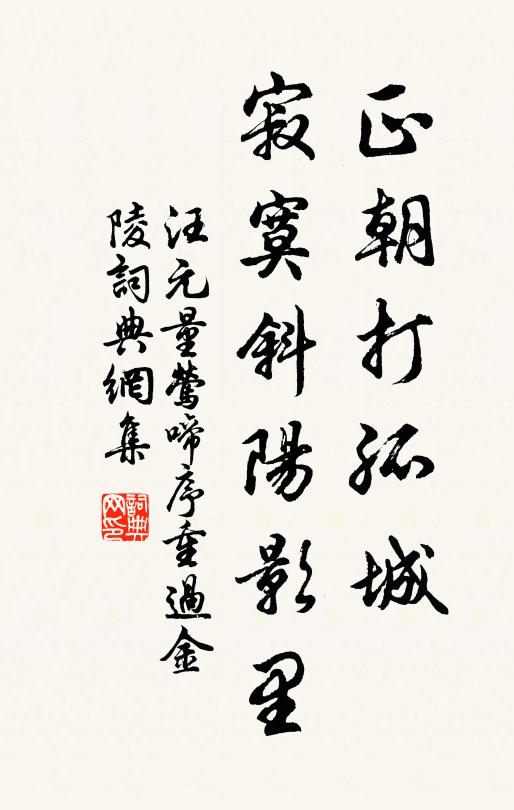 正朝打孤城
寂寞斜陽影里
汪元量鶯啼序重過金
陵詞典網集
詞典網印